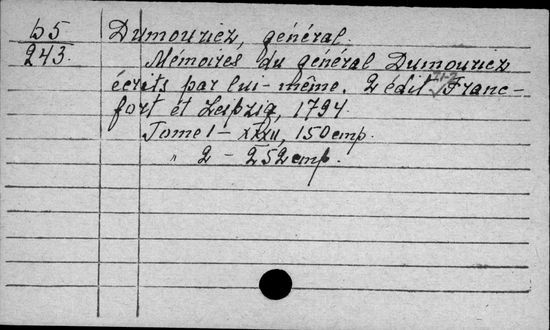 55 Dumouriez, général.
243. Mémoires du général Dumouriez
écrits par lui-même. 2 édit. Franc-
fort et Leipzig, 1794
Tome 1 – XXII, 150 стр.
„ 2 – 252 стр.